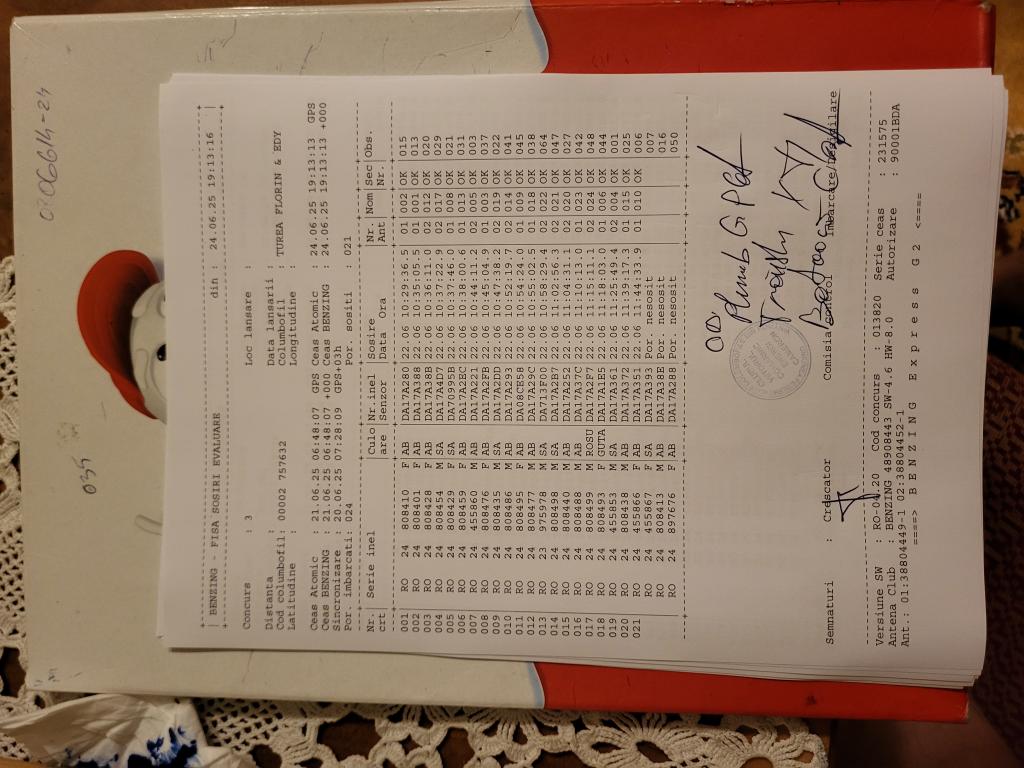 0206614-24
035
| BENZING - FISA SOSIRI EVALUARE din : 24.06.25 19:13:16 |
Concurs : 3 Loc lansare :
Distanta : Data lansarii :
Cod columbofil: 00002 757632 Columbofil : TUREA FLORIN & EDY
Latitudine : Longitudine :
Ceas Atomic : 21.06.25 06:48:07 GPS Ceas Atomic : 24.06.25 19:13:13 GPS
Ceas BENZING : 21.06.25 06:48:07 +000 Ceas BENZING : 24.06.25 19:13:13 +000
Sincronizare : 20.06.25 07:28:09 GPS+03h
Por. imbarcati: 024 Por. sositi : 021
Nr.| Serie inel |Culo|Nr.inel |Sosire |Nr.|Nom|Sec|Obs.
crt| |are |Senzor |Data Ora |Ant| |Nr.|
001 RO 24 808410 F AB DA17A280 22.06 10:29:36.5 01 002 OK 015
002 RO 24 808401 F AB DA17A388 22.06 10:35:05.5 01 001 OK 013
003 RO 24 808428 F AB DA17A38B 22.06 10:36:11.0 02 012 OK 020
004 RO 24 808454 M SA DA17A4D7 22.06 10:37:22.9 02 017 OK 029
005 RO 24 808429 F SA DA70995B 22.06 10:37:46.0 01 008 OK 021
006 RO 24 808459 F AB DA17A2BC 22.06 10:38:00.6 01 013 OK 031
007 RO 24 455860 M AB DA17A221 22.06 10:44:11.2 02 005 OK 003
008 RO 24 808476 F AB DA17A2FB 22.06 10:45:04.9 01 003 OK 037
009 RO 24 808435 M SA DA17A2DD 22.06 10:47:38.2 02 019 OK 022
010 RO 24 808486 M AB DA17A293 22.06 10:52:19.7 02 014 OK 041
011 RO 24 808495 F AB DA08CE58 22.06 10:54:24.0 01 009 OK 045
012 RO 24 808477 M AB DA17A29C 22.06 10:55:02.5 01 018 OK 038
013 RO 23 975978 M SA DA713F00 22.06 10:58:29.4 02 022 OK 064
014 RO 24 808498 M SA DA17A2B7 22.06 11:02:56.3 02 021 OK 047
015 RO 24 808440 M AB DA17A252 22.06 11:04:31.1 02 020 OK 027
016 RO 24 808488 M AB DA17A37C 22.06 11:10:13.0 01 023 OK 042
017 RO 24 808499 M ROSU DA17A2F7 22.06 11:15:13.1 02 024 OK 048
018 RO 24 808493 F GUTA DA17A1E5 22.06 11:18:03.2 01 006 OK 044
019 RO 24 455953 M SA DA17A361 22.06 11:25:49.4 02 004 OK 001
020 RO 24 808438 M AB DA17A372 22.06 11:39:17.3 01 015 OK 025
021 RO 24 455866 F AB DA17A351 22.06 11:44:33.9 01 010 OK 006
RO 24 455867 F SA DA17A393 Por. nesosit 007
RO 24 808413 M AB DA17A38E Por. nesosit 016
RO 24 897676 F AB DA17A288 Por. nesosit 050
Semnaturi : Crescator Comisia control imbarcare/desigilare
Versiune SW : RO-04.20 Cod concurs : 013820 Serie ceas : 231575
Antena Club : BENZING 48908443 SW-4.6 HW-8.0 Autorizare : 90001BDA
Ant.: 01:38804449-1 02:38804452-1
====> B E N Z I N G E x p r e s s G 2 <====